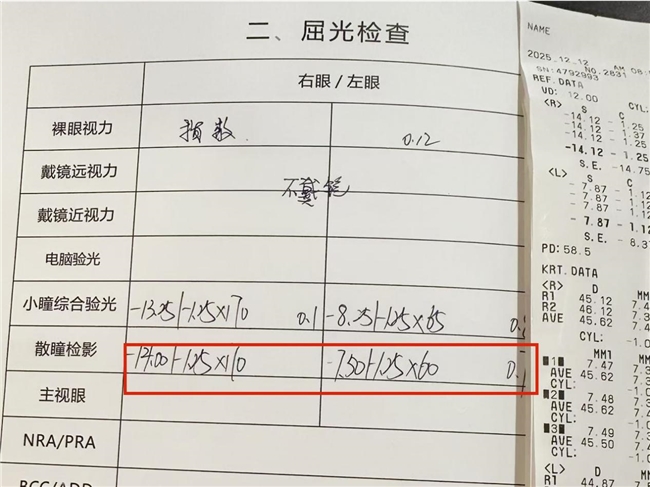 二、屈光检查
右眼/左眼
裸眼视力 指数 0.12
戴镜远视力
不戴镜
戴镜近视力
电脑验光
小瞳综合验光 -13.25/-1.25×170 0.1 -8.25/-1.25×65
散瞳检影 -1.25×170 -7.50/-1.25×60
主视眼
NRA/PRA
BCC/ADD
NAME
2025.12.12 AM 08:
SN:4792993 NO.2831
REF.DATA
VD: 12.00 CYL:
<R> S C
-14.12 - 1.25
-14.12 - 1.37
-14.12 - 1.25
-14.12 - 1.25
S.E. -14.75
<L> S C
- 7.87 - 1.12
- 7.87 - 1.12
- 7.87 - 1.12
- 7.87 - 1.12
S.E. - 8.37
PD: 58.5
KRT.DATA
<R> D MM
R1 45.12 7.4
R2 46.12 7.3
AVE 45.62 7.4
CYL: -1.0
MM1
1 7.47 7.3
AVE 45.62 7.4
CYL: -1.0
2 7.48 7.3
AVE 45.62 7.4
CYL: -1.0
3 7.49 7.3
AVE 45.50 7.4
CYL: -1.0
<L> D MM
R1 44.87 7.5